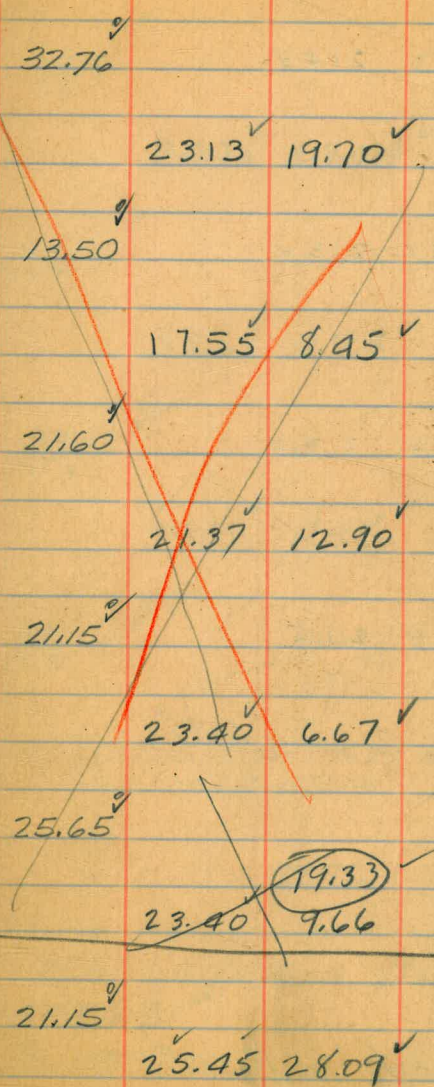 32.76
23.13 19.70
13.50
17.55 8.45
21.60
21.37 12.90
21.15
23.40 6.67
25.65
19.33
23.40 9.66
21.15
25.45 28.09